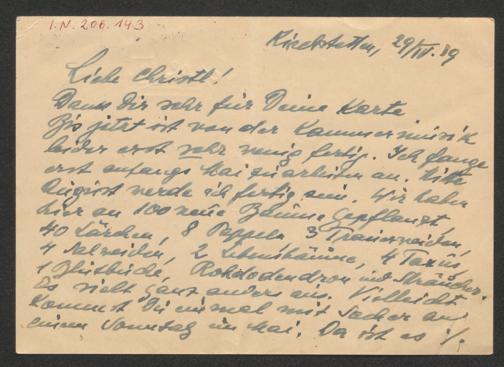 I.N. 206.143
Kirchstetten, 29/IV.39
Liebe Christl!
Dank Dir sehr für Deine Karte
Bis jetzt ist von der Kammermusik
leider erst sehr wenig fertig. Ich fange
erst anfangs Mai zu arbeiten an. Mitte
August werde ich fertig sein. Wir haben
hier an 100 neue Bäume gepflanzt,
40 Lärchen, 8 Pappeln 3 Trauerweiden,
4 Salweiden, 2 Lebensbäume, 4 Taxus,
1 Blutbuche, Rohdodendron und Sträucher.
Es sieht ganz anders aus. Vielleicht
kommst Du einmal mit an
einem Sonntag im Mai. Da ist es ./.